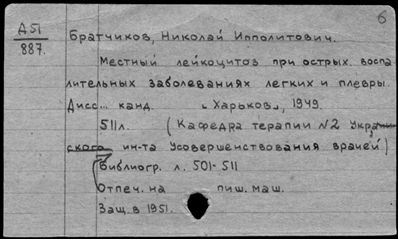 6
Д51
887.
Братчиков, Николай Ипполитович.
Местный лейкоцитов при острых. воспа-
лительных заболеваниях легких и плевры.
Дисс... канд. "Харьков", 1949.
511л. (Кафедра терапии №2 Украин
ского ин-та Усовершенствования врачей)
Библиогр. л. 501-511
Отпеч. на пиш. маш.
Защ. в 1951.